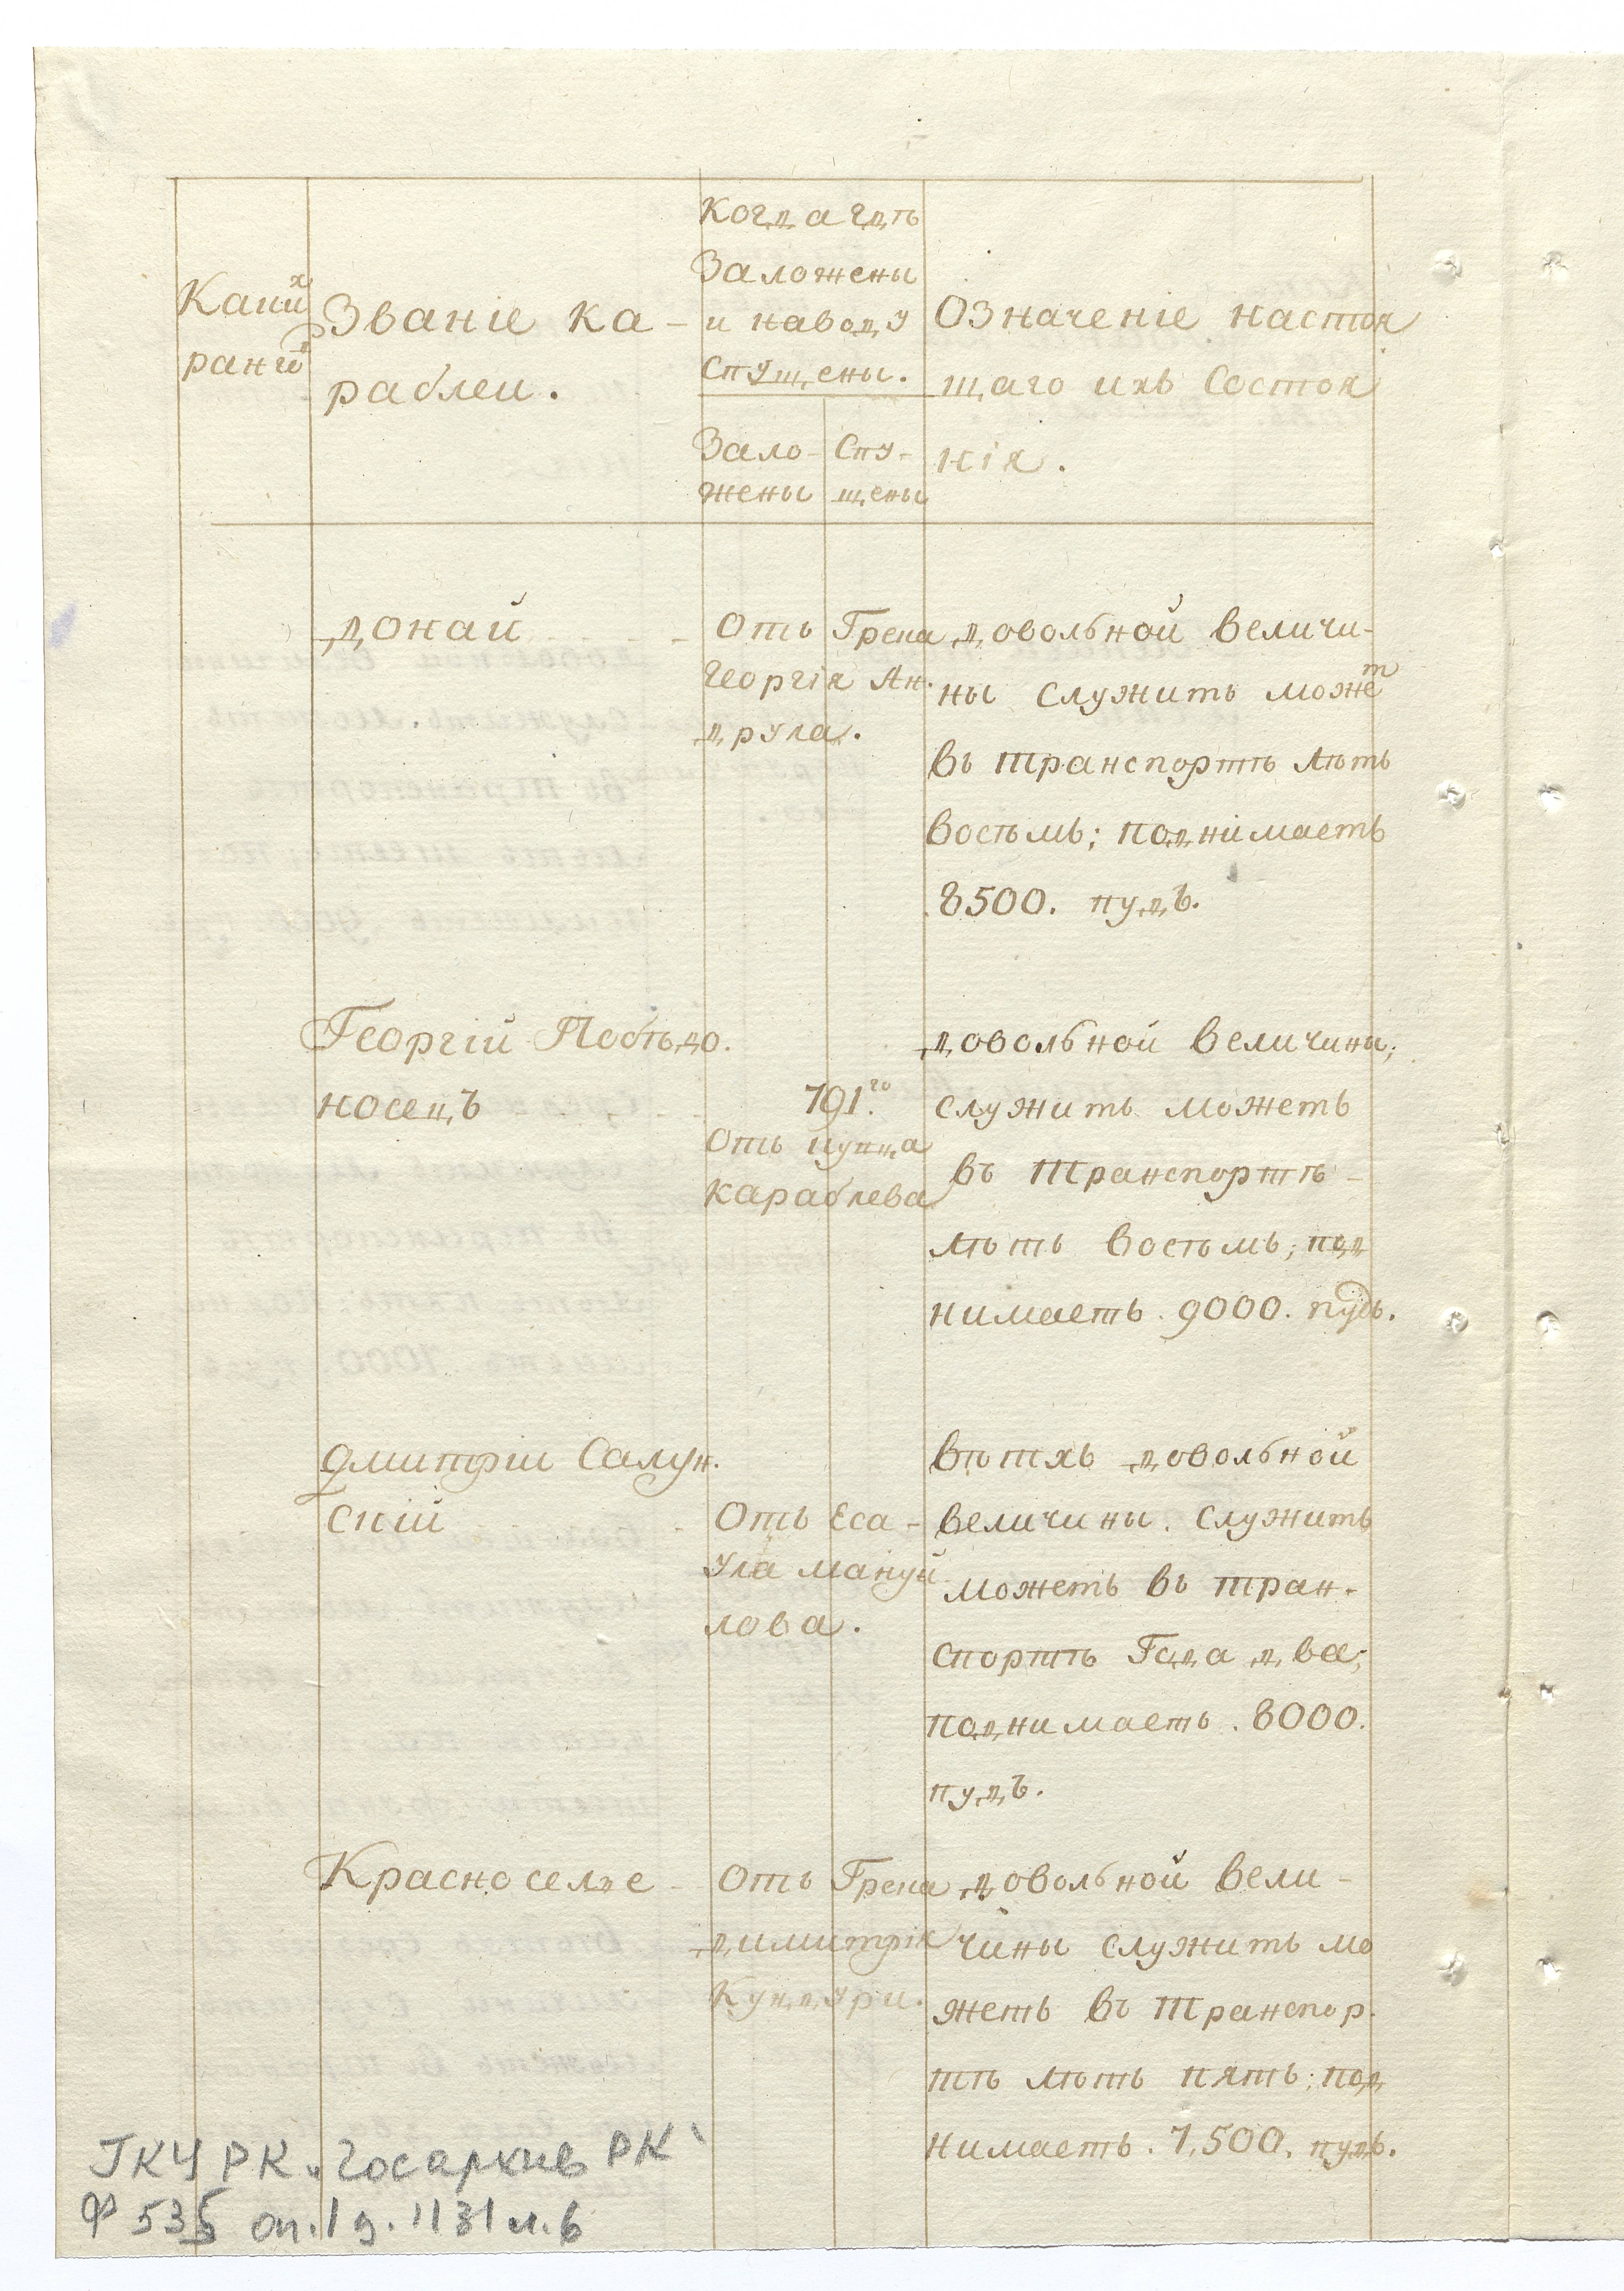 Какихъ
ранговъ
Званіе ка-
раблеи.
Когда гдѣ
Заложены
и наводу
Спущены.
Зало-
жены
Спу-
щены
Означеніе настоя
щаго ихъ Состоя
нія.
Донай
Отъ Грека
Георгія Ан.
друла.
довольной величи-
ны служить можетъ
въ транспортѣ лѣтъ
восѣмь; поднімаетъ
8500. пудъ.
Георгій Побѣдо.
носецъ
791.го
Отъ купца
караблева
довольной величины;
служить можетъ
въ транспортѣ -
лѣтъ восѣмь; под
нимаетъ. 9000. пудъ.
Дмитріи Салун.
скій
Отъ Еса-
ула мануй
лова.
вѣтхъ довольной
величины. служить
можетъ въ тран.
спортѣ Года два;
поднимаетъ. 8000.
пудъ.
Красноселье
Отъ Грека
димитрія
Кундури.
довольной вели-
чины служить мо
жетъ въ транспор.
тѣ лѣтъ пять; под
нимаетъ. 7,500. пудъ.
ГКУ РК „Госархив РК"
Ф 535 оп.1 д.1131 л.6